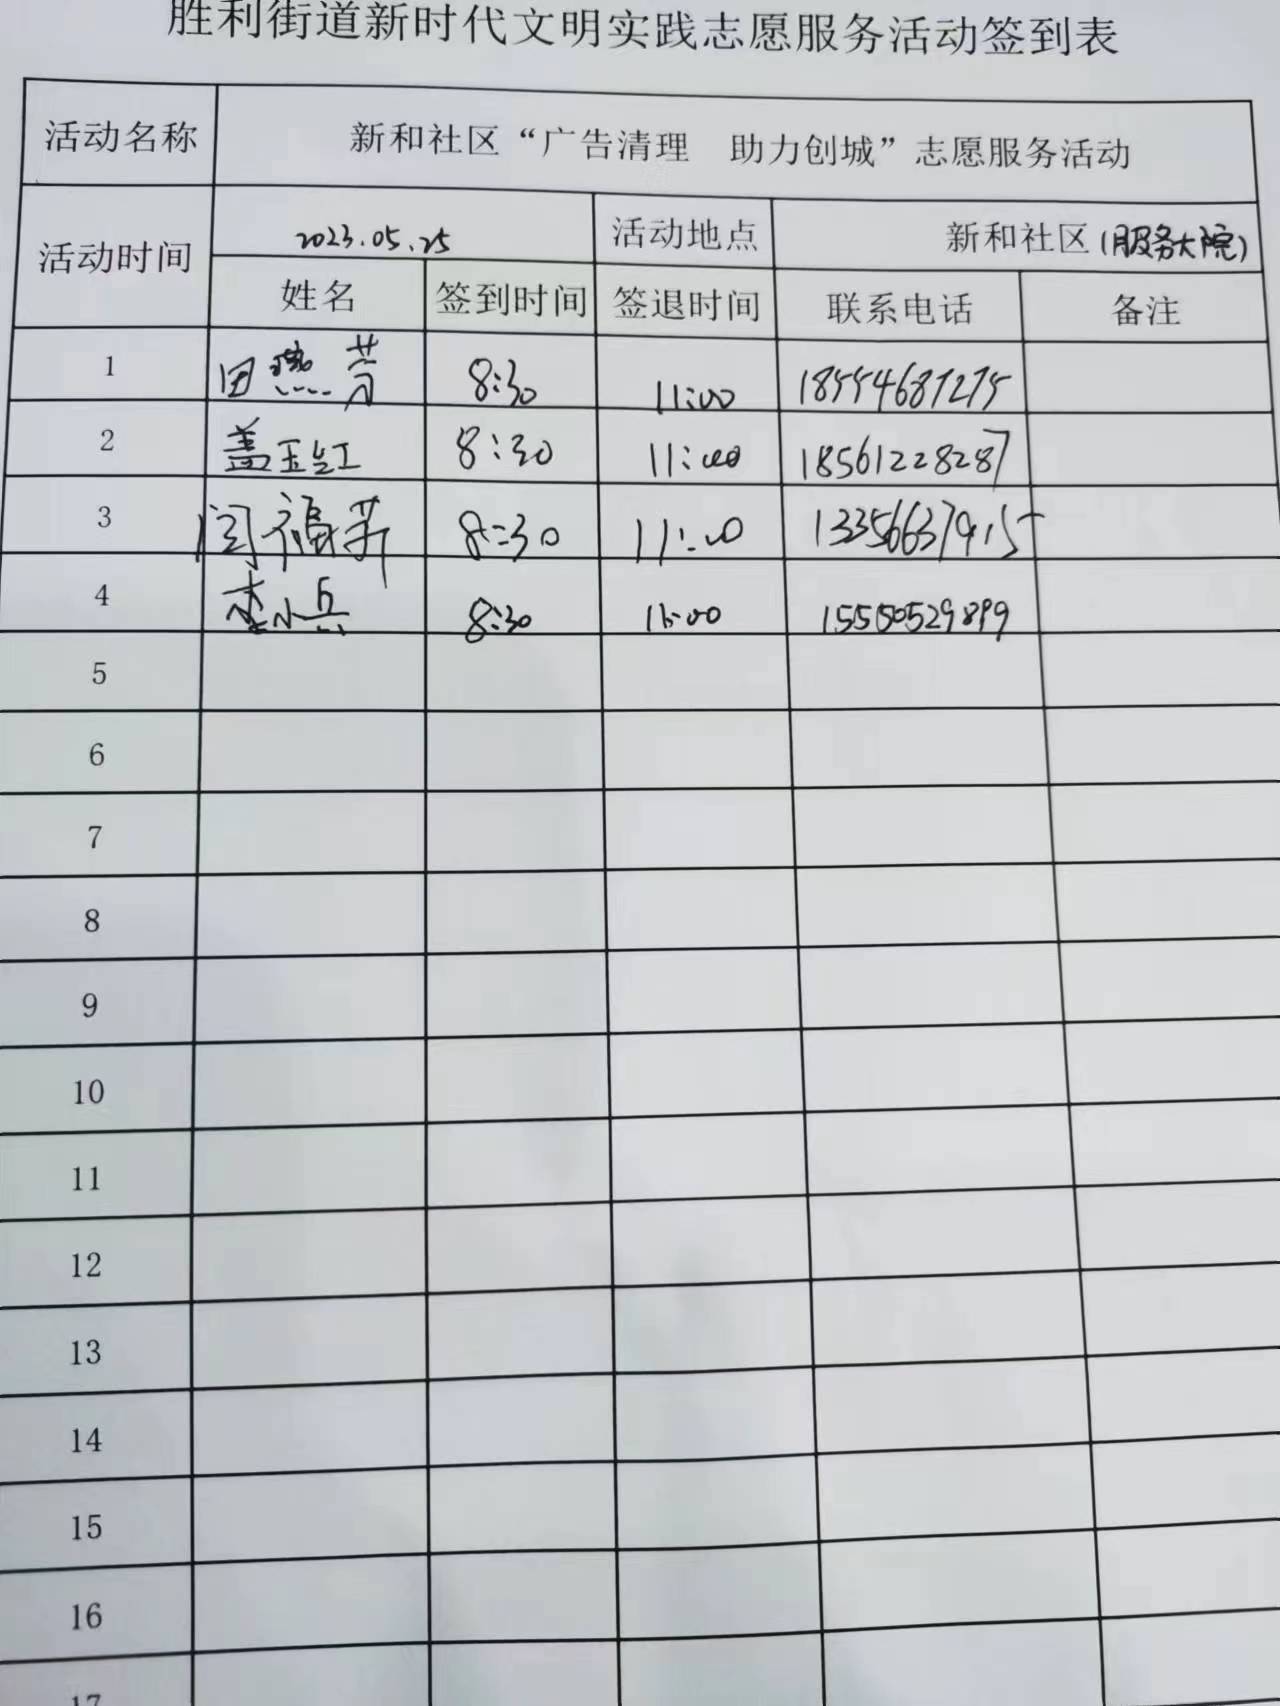 胜利街道新时代文明实践志愿服务活动签到表
活动名称 新和社区“广告清理 助力创城”志愿服务活动
活动时间 2023.05.25 活动地点 新和社区(服务大院)
姓名 签到时间 签退时间 联系电话 备注
1 田燕芳 8:30 11:00 18554687275
2 盖玉红 8:30 11:00 18561228287
3 闫福新 8:30 11:00 13356637915
4 李小兵 8:30 11:00 15550529899
5
6
7
8
9
10
11
12
13
14
15
16
17